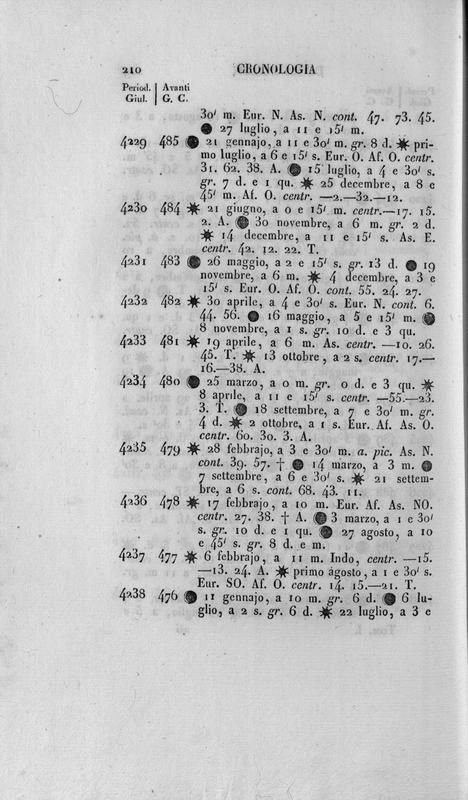 210 CRONOLOGIA
Period. | Avanti
Giul. | G. C.
30' m. Eur. N. As. N. cont. 47. 73. 45.
● 27 luglio, a 11 e 15' m.
4229 485 ● 21 gennajo, a 11 e 30' m. gr. 8 d. ✷ pri-
mo luglio, a 6 e 15' s. Eur. O. Af. O. centr.
31. 62. 38. A. ● 15 luglio, a 4 e 30' s.
gr. 7 d. e 1 qu. ✷ 25 decembre, a 8 e
45' m. Af. O. centr. —2.—32.—12.
4230 484 ✷ 21 giugno, a 0 e 15' m. centr.—17. 15.
2. A. ● 30 novembre, a 6 m. gr. 2 d.
✷ 14 decembre, a 11 e 15' s. As. E.
centr. 42. 12. 22. T.
4231 483 ● 26 maggio, a 2 e 15' s. gr. 13 d. ● 19
novembre, a 6 m. ✷ 4 decembre, a 3 e
15' s. Eur. O. Af. O. cont. 55. 24. 27.
4232 482 ✷ 30 aprile, a 4 e 30' s. Eur. N. cont. 6.
44. 56. ● 16 maggio, a 5 e 15' m. ●
8 novembre, a 1 s. gr. 10 d. e 3 qu.
4233 481 ✷ 19 aprile, a 6 m. As. centr. —10. 26.
45. T. ✷ 13 ottobre, a 2 s. centr. 17.—
16.—38. A.
4234 480 ● 25 marzo, a 0 m. gr. 0 d. e 3 qu. ✷
8 aprile, a 11 e 15' s. centr. —55.—23.
3. T. ● 18 settembre, a 7 e 30' m. gr.
4 d. ✷ 2 ottobre, a 1 s. Eur. Af. As. O.
centr. 60. 30. 3. A.
4235 479 ✷ 28 febbrajo, a 3 e 30' m. a. pic. As. N.
cont. 39. 57. † ● 14 marzo, a 3 m. ●
7 settembre, a 6 e 30' s. ✷ 21 settem-
bre, a 6 s. cont. 68. 43. 11.
4236 478 ✷ 17 febbrajo, a 10 m. Eur. Af. As. NO.
centr. 27. 38. † A. ● 3 marzo, a 1 e 30'
s. gr. 10 d. e 1 qu. ● 27 agosto, a 10
e 45' s. gr. 8 d. e m.
4237 477 ✷ 6 febbrajo, a 11 m. Indo, centr. —15.
—13. 24. A. ✷ primo agosto, a 1 e 30' s.
Eur. SO. Af. O. centr. 14. 15.—21. T.
4238 476 ● 11 gennajo, a 10 m. gr. 6 d. ● 6 lu-
glio, a 2 s. gr. 6 d. ✷ 22 luglio, a 3 e